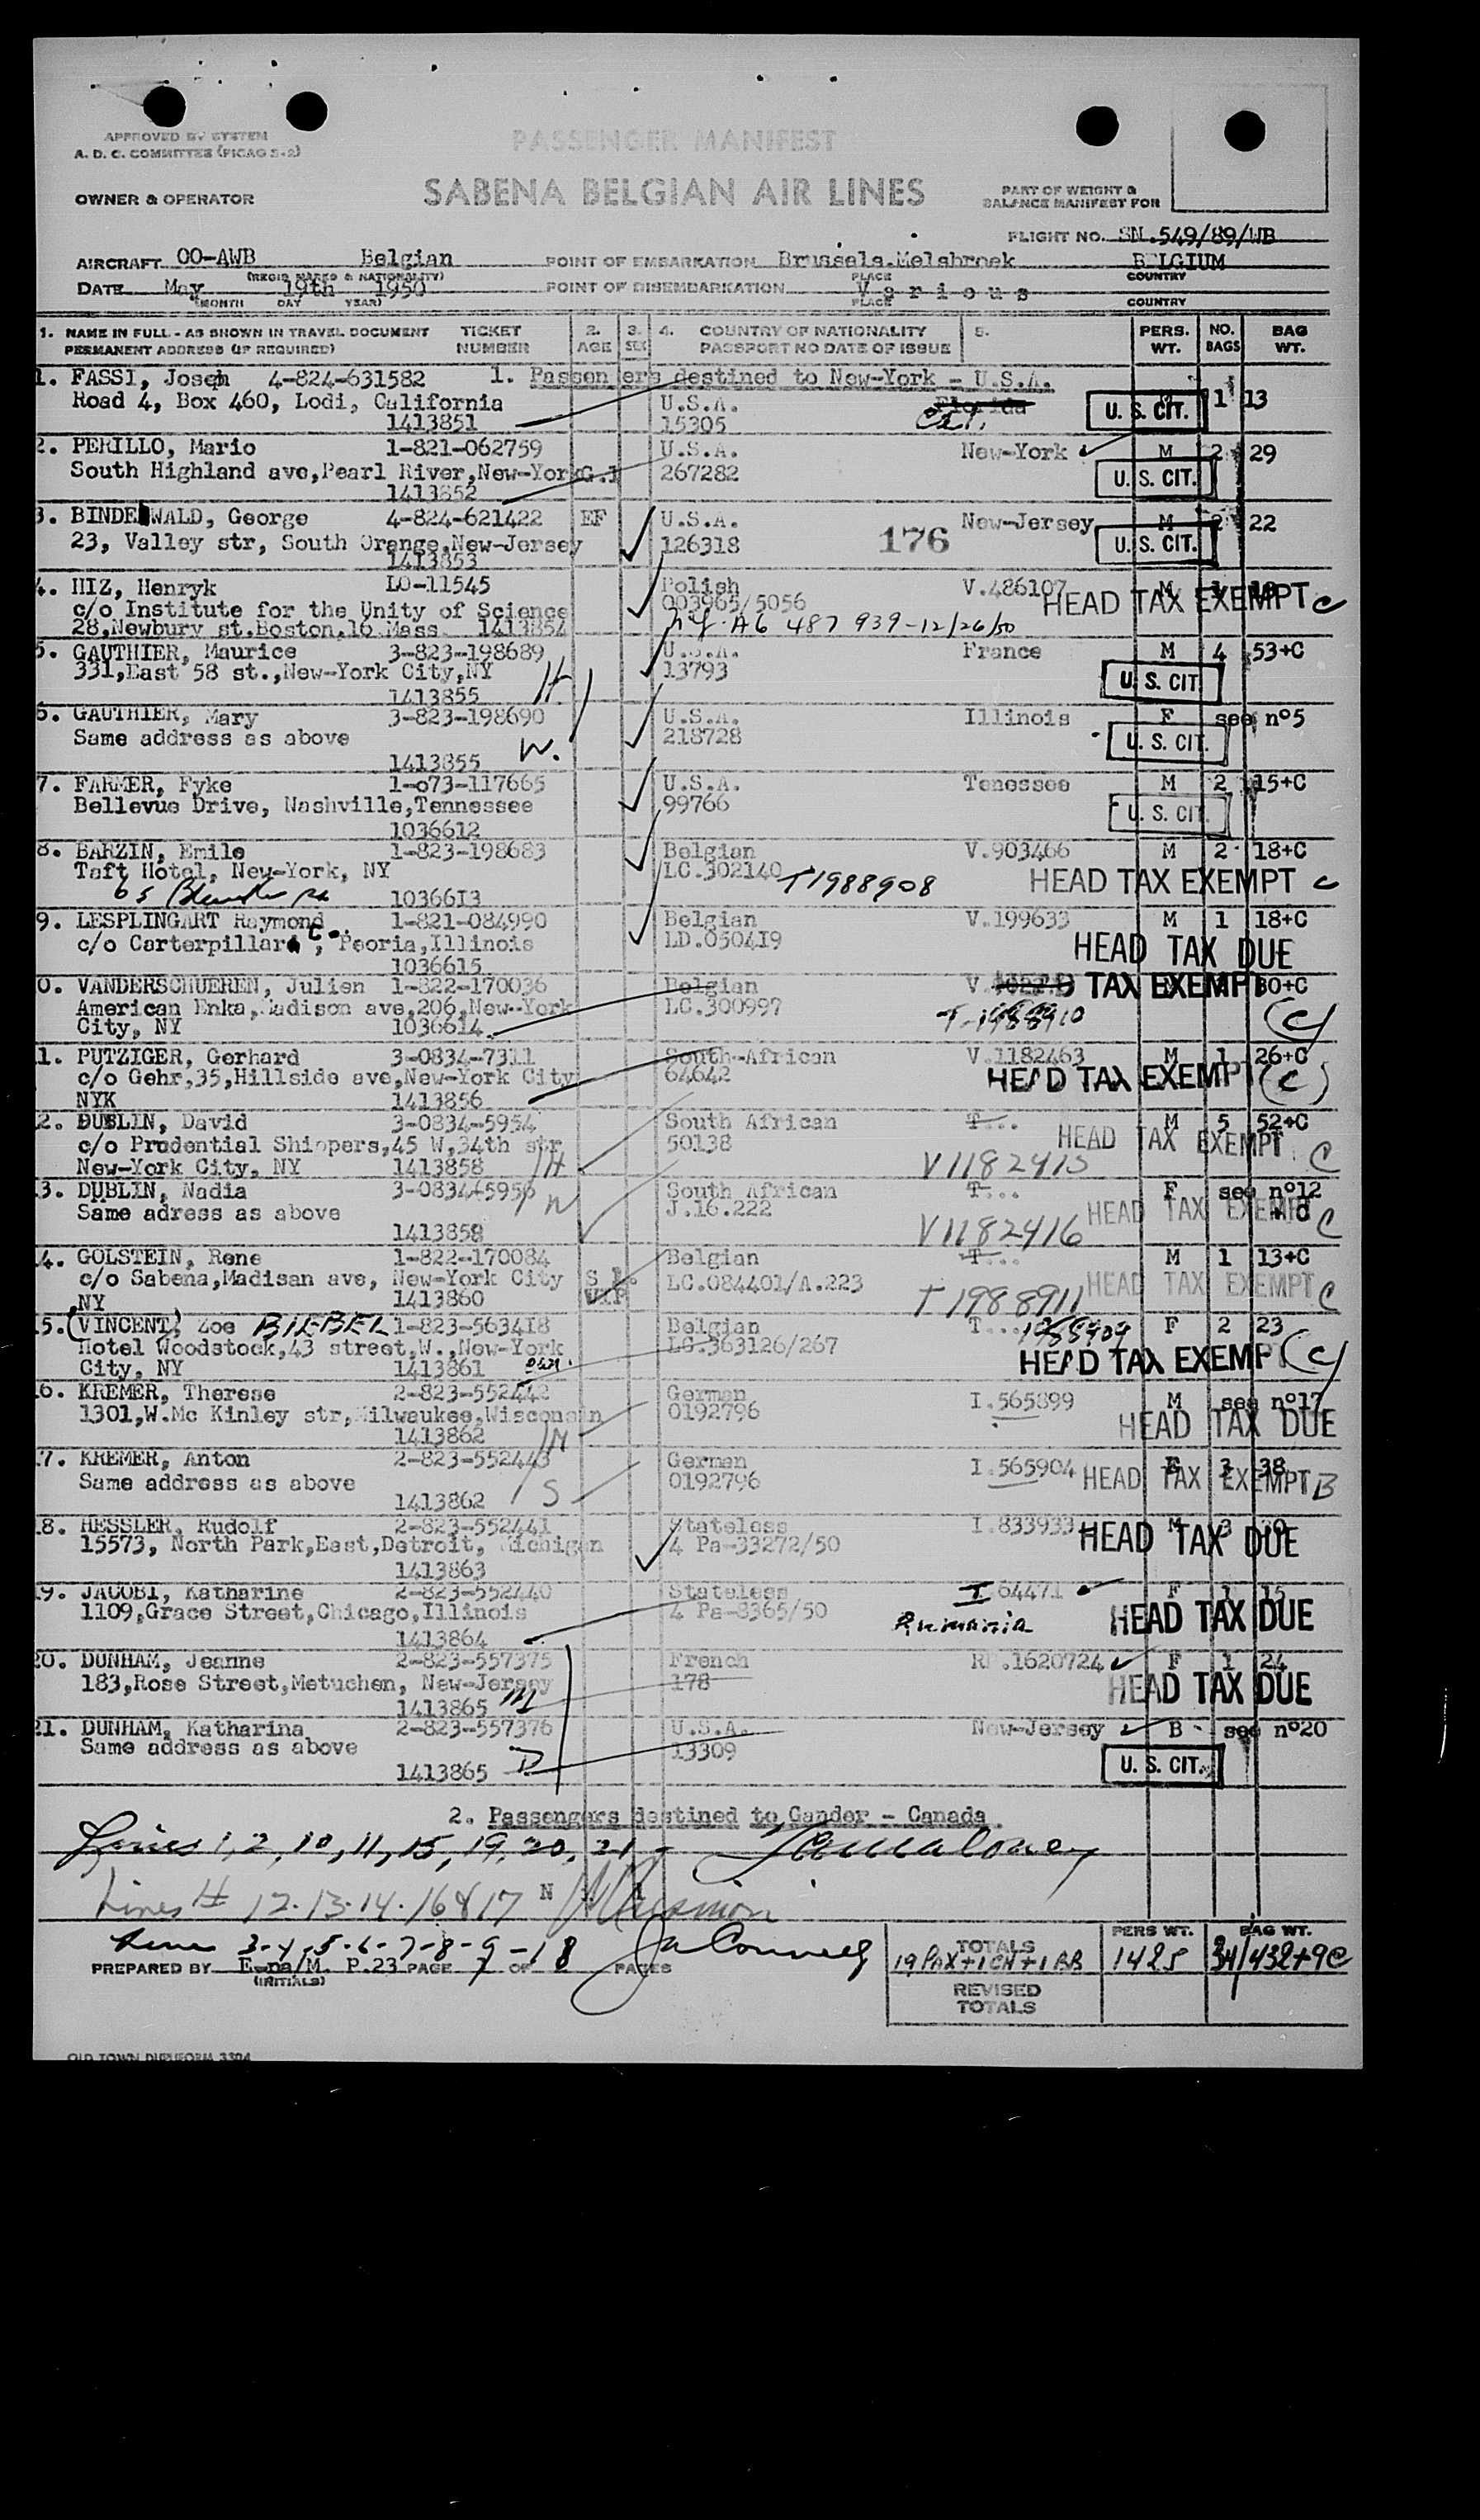 APPROVED BY SYSTEM
A. D. C. COMMITTEE (PICAO S-2)
PASSENGER MANIFEST
OWNER & OPERATOR SABENA BELGIAN AIR LINES
PART OF WEIGHT &
BALANCE MANIFEST FOR
FLIGHT NO. SN.549/89/WB
AIRCRAFT OO-AWB Belgian POINT OF EMBARKATION Brussels.Melsbroek BELGIUM
(REGIS MARKS & NATIONALITY) PLACE COUNTRY
DATE May 19th 1950 POINT OF DISEMBARKATION Various
(MONTH DAY YEAR) PLACE COUNTRY
1. NAME IN FULL - AS SHOWN IN TRAVEL DOCUMENT TICKET 2. 3. 4. COUNTRY OF NATIONALITY 5. PERS. NO. BAG
PERMANENT ADDRESS (IF REQUIRED) NUMBER AGE SEX PASSPORT NO DATE OF ISSUE WT. BAGS WT.
1. FASSI, Joseph 4-824-631582 1. Passengers destined to New-York - U.S.A.
Road 4, Box 460, Lodi, California U.S.A. Florida U. S. CIT. 1 13
1413851 15305 Cal.
2. PERILLO, Mario 1-821-062759 U.S.A. New-York M 2 29
South Highland ave,Pearl River,New-York G.1 267282 U. S. CIT.
1413852
3. BINDEWALD, George 4-824-621422 EF U.S.A. New-Jersey M 2 22
23, Valley str, South Orange,New-Jersey 126318 176 U. S. CIT.
1413853
4. HIZ, Henryk LO-11545 Polish V.486107 M 1 18
c/o Institute for the Unity of Science 003965/5056 HEAD TAX EXEMPT C
28,Newbury st.Boston,16 Mass 1413854 A6 487 939-12/26/50
5. GAUTHIER, Maurice 3-823-198689 U.S.A. France M 4 53+C
331,East 58 st.,New-York City,NY H 13793 U. S. CIT
1413855
6. GAUTHIER, Mary 3-823-198690 U.S.A. Illinois F see n°5
Same address as above W. 218728 U. S. CIT.
1413855
7. FARMER, Fyke 1-073-117665 U.S.A. Tenessee M 2 15+C
Bellevue Drive, Nashville,Tennessee 99766 U. S. CIT
1036612
8. BARZIN, Emile 1-823-198683 Belgian V.903466 M 2 18+C
Taft Hotel, New-York, NY LC.302140 T1988908 HEAD TAX EXEMPT C
65 1036613
9. LESPLINGART Raymond 1-821-084990 Belgian V.199633 M 1 18+C
c/o Carterpillar Co., Peoria,Illinois LD.050419 HEAD TAX DUE
1036615
0. VANDERSCHUEREN, Julien 1-822-170036 Belgian V. TAX EXEMPT 30+C
American Enka,Madison ave,206,New-York LC.300997 T-1988910 (C)
City, NY 1036614
1. PUTZIGER, Gerhard 3-0834-7311 South-African V.1182463 M 1 26+C
c/o Gehr,35,Hillside ave,New-York City 64642 HEAD TAX EXEMPT (C)
NYK 1413856
2. DUBLIN, David 3-0834-5954 South African T... M 5 52+C
c/o Prudential Shippers,45 W,34th str 50138 HEAD TAX EXEMPT C
New-York City, NY 1413858 H V1182415
3. DUBLIN, Nadia 3-0834-5955 W South African T... F see n°12
Same adress as above J.16.222 + C HEAD TAX EXEMPT C
1413859 V1182416
4. GOLSTEIN, Rene 1-822-170084 Belgian T... M 1 13+C
c/o Sabena,Madisan ave, New-York City LC.084401/A.223 HEAD TAX EXEMPT C
NY 1413860 VIP T1988911
5. (VINCENT) Zoe BIEBEL 1-823-563418 Belgian T... 1988909 F 2 23
Hotel Woodstock,43 street,W.,New-York LC.363126/267 HEAD TAX EXEMP (C)
City, NY 1413861
6. KREMER, Therese 2-823-552442 German I.565899 M see n°17
1301,W.Mc Kinley str,Milwaukee,Wisconsin 0192796 HEAD TAX DUE
1413862 M
7. KREMER, Anton 2-823-552443 German I.565904 F 3 38
Same address as above 0192796 HEAD TAX EXEMPT B
1413862 S
8. HESSLER, Rudolf 2-823-552441 Stateless I.833933 M 3 30
15573, North Park,East,Detroit, Michigan 4 Pa-33272/50 HEAD TAX DUE
1413863
9. JACOBI, Katharine 2-823-552440 Stateless I 64471 F 1 15
1109,Grace Street,Chicago,Illinois 4 Pa-8365/50 Rumania HEAD TAX DUE
1413864
20. DUNHAM, Jeanne 2-823-557375 French RP.1620724 F 1 24
183,Rose Street,Metuchen, New-Jersey 178 HEAD TAX DUE
1413865 M
21. DUNHAM, Katharina 2-823-557376 U.S.A. New-Jersey B see n°20
Same address as above 13309 U. S. CIT.
1413865 D
2. Passengers destined to Gander - Canada.
Lines 1, 2, 10, 11, 15, 19, 20, 21 -
Lines # 12.13.14.16&17 N i l
Line 3-4-5-6-7-8-9-18
PREPARED BY E.na/M. P.23 PAGE OF PAGES
(INITIALS)
TOTALS PERS WT. BAG WT.
19PAX+1CH+1BB 1425 34/432+9C
REVISED
TOTALS
OLD TOWN DUPLIFORM 3304